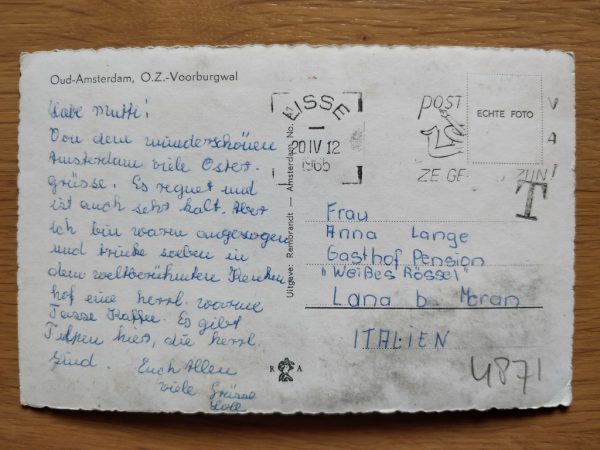 Oud-Amsterdam, O.Z.-Voorburgwal
Liebe Mutti!
Von dem wunderschönen
Amsterdam viele Oster-
grüsse. Es regnet und
ist auch sehr kalt. Aber
ich bin warm angezogen
und trinke soeben in
dem weltberühmten Keuken
hof eine herrl. warme
Tasse Kaffee. Es gibt
Tulpen hier, die herrl.
sind. Euch Allen
viele Grüsse
Uitgave: Rembrandt — Amsterdam No. 47
LISSE
20 IV 12
1965
POST
ZE GE
ZIJN
V
A
ECHTE FOTO
T
Frau
Anna Lange
Gasthof Pension
"Weißes Rössel"
Lana b. Meran
ITALIEN
4871
R A